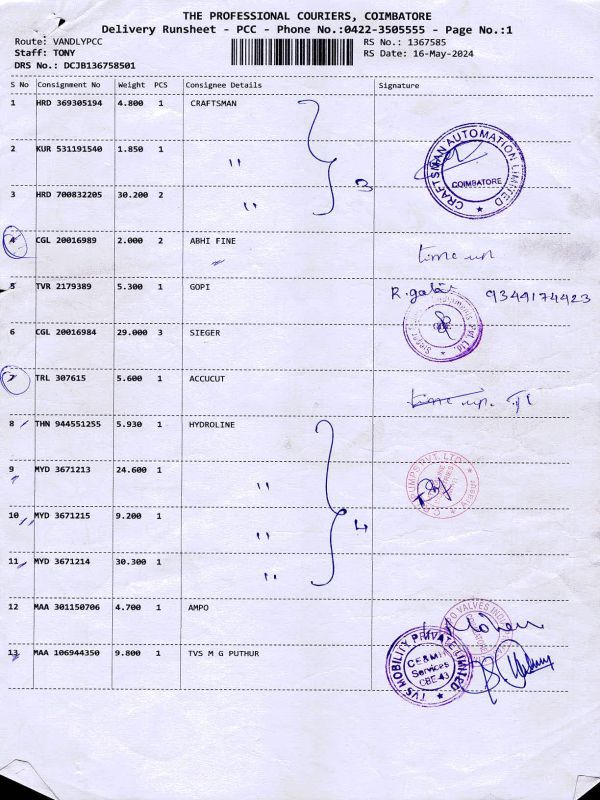 THE PROFESSIONAL COURIERS, COIMBATORE
Delivery Runsheet - PCC - Phone No.:0422-3505555 - Page No.:1
Route: VANDLYPCC RS No.: 1367585
Staff: TONY RS Date: 16-May-2024
DRS No.: DCJB136758501
S No Consignment No Weight PCS Consignee Details Signature
1 HRD 369305194 4.800 1 CRAFTSMAN
2 KUR 531191540 1.850 1 "
3 HRD 700832205 30.200 2 "
3
CRAFTSMAN AUTOMATION LIMITED
COIMBATORE
4 CGL 20016989 2.000 2 ABHI FINE time up
5 TVR 2179389 5.300 1 GOPI 9349174423
6 CGL 20016984 29.000 3 SIEGER
7 TRL 307615 5.600 1 ACCUCUT time up
8 THN 944551255 5.930 1 HYDROLINE
9 MYD 3671213 24.600 1 "
10 MYD 3671215 9.200 1 "
11 MYD 3671214 30.300 1 "
4
12 MAA 301150706 4.700 1 AMPO
13 MAA 106944350 9.800 1 TVS M G PUTHUR
TVS MOBILITY PRIVATE LIMITED
Services
CBE-43